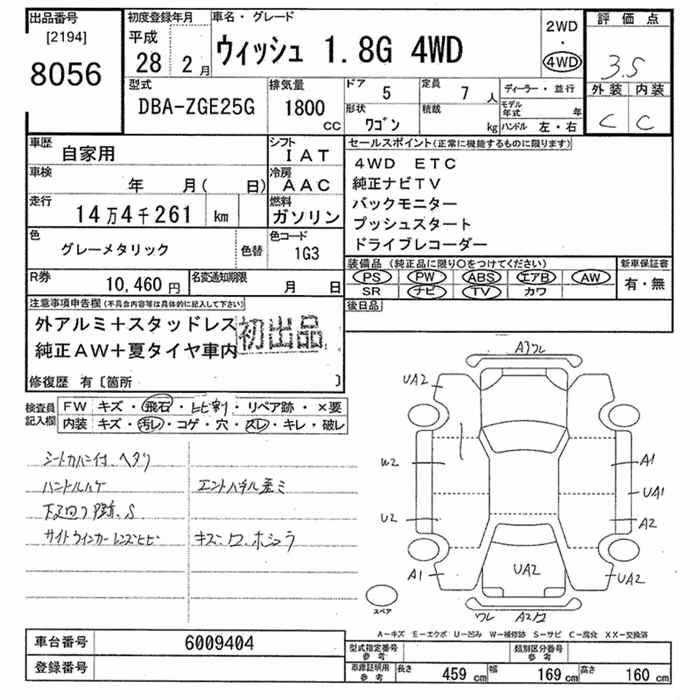 出品番号
[2194]
8056
初度登録年月
平成
28 2月
車名・グレード
ウィッシュ 1.8G 4WD
2WD
・
4WD
評価点
3.5
外装 内装
C C
型式
DBA-ZGE25G
排気量
1800
cc
ドア
5
定員
7 人
形状
ワゴン
積載
kg
ディーラー・並行
モデル年式 年
ハンドル 左・右
車歴
自家用
シフト
IAT
車検
年 月( 日)
冷房
AAC
走行
14万4千261 km
燃料
ガソリン
色
グレーメタリック
色替
色コード
1G3
R券
10,460 円
名変通知期限
月 日
セールスポイント(正常に機能するものに限ります)
4WD ETC
純正ナビTV
バックモニター
プッシュスタート
ドライブレコーダー
装備品 (純正品に限り○をつけてください)
PS PW ABS エアB AW
SR ナビ TV カワ
新車保証書
有・無
後日品
注意事項申告欄(不具合内容等は具体的に記入して下さい)
外アルミ+スタッドレス
純正AW+夏タイヤ車内
初出品
修復歴 有〔箇所 〕
検査員
記入欄
FW キズ・飛石・ヒビ割・リペア跡・×要
内装 キズ・汚レ・コゲ・穴・スレ・キレ・破レ
シートカバー付、ヘタリ
ハンドルハゲ
エンドパネル歪ミ
下廻リ 錆、S
サイドウインカーレンズヒビ
キズ・ワレ
A ワレ
UA2
W2
U2
A1
A1
UA1
A2
UA2
UA2
ワレ
スペア
A−キズ E−エクボ U−凹み W−補修跡 S−サビ C−腐食 XX−交換済
車台番号
6009404
登録番号
型式指定番号
参考
類別区分番号
参考
車庫証明用
参考
長さ 459 cm 幅 169 cm 高さ 160 cm